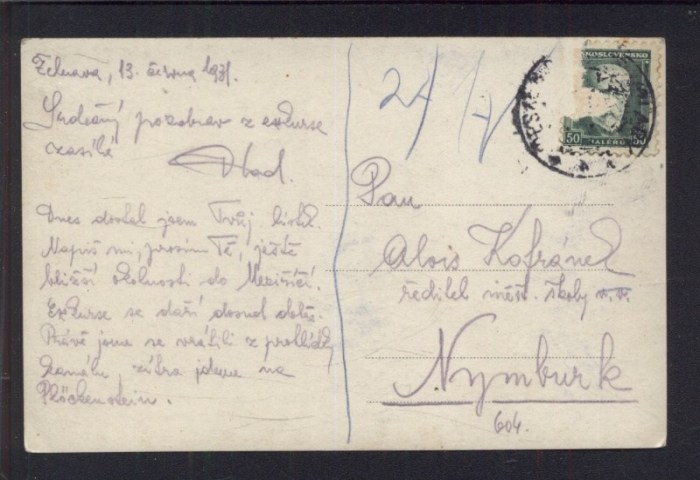 Želnava, 13. června 1931.
Srdečný pozdrav z exkurse
zasílá
Vlad.
Dnes dostal jsem Tvůj lístek.
Napiš mi, prosím Tě, ještě
bližší okolnosti do Meziříčí.
Exkurse se daří dosud dobře.
Právě jsme se vrátili z prohlídky
kanálu, zítra jdeme na
Plöckenstein.
24/
KOSLOVENSKO
50
HALÉŘŮ
50
Pan
Alois Kofránek
ředitel měšt. školy v. v.
Nymburk
604.